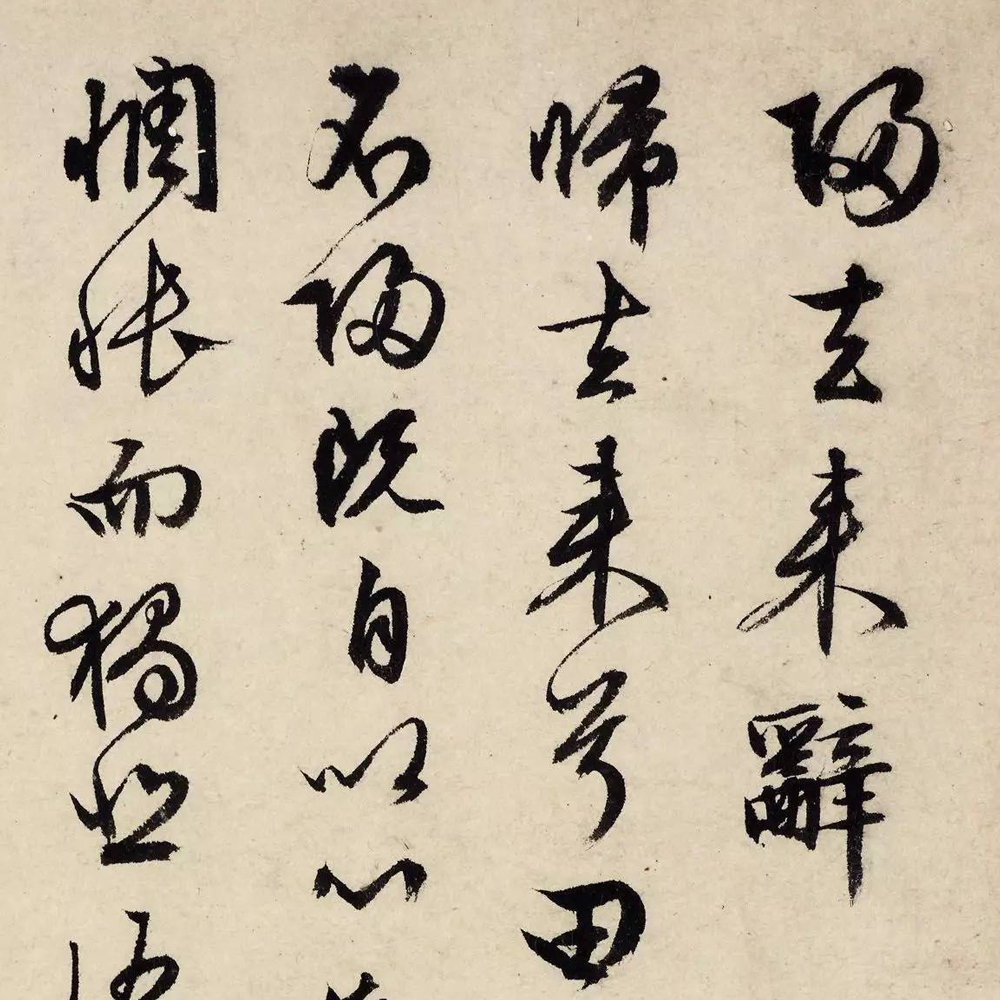 歸去來辭
歸去來兮田
不歸既自以心
惆悵而獨悲